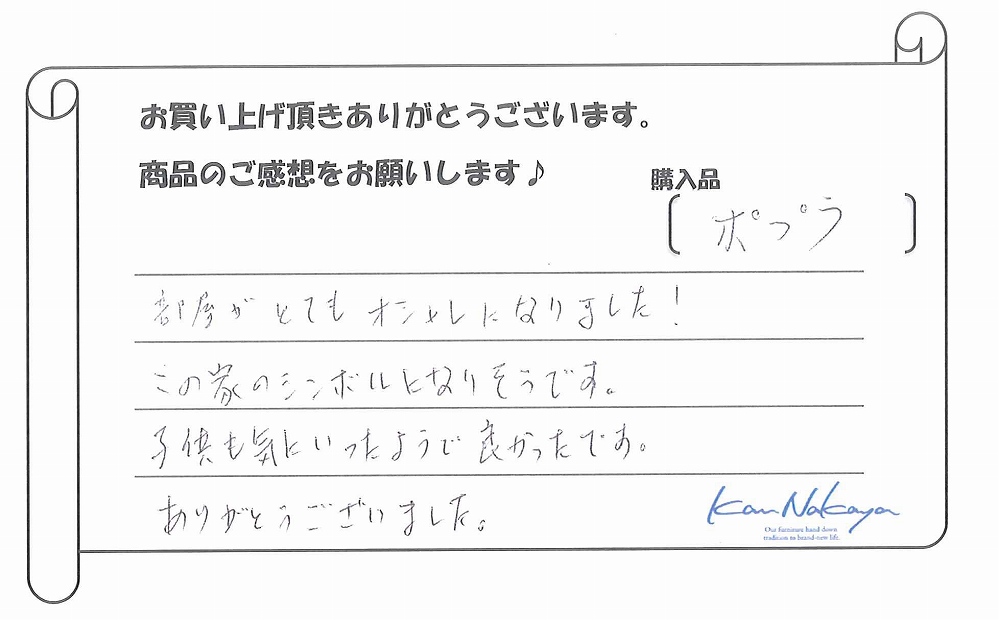 お買い上げ頂きありがとうございます。
商品のご感想をお願いします♪
購入品
〔ポプラ〕
部屋がとてもオシャレになりました！
この家のシンボルになりそうです。
子供も気にいったようで良かったです。
ありがとうございました。
Kan Nakaya
Our furniture hand down
tradition to brand-new life.